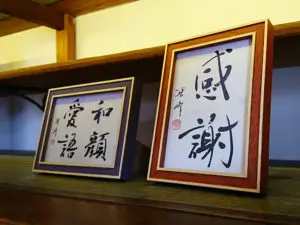 和顔
愛語
感謝